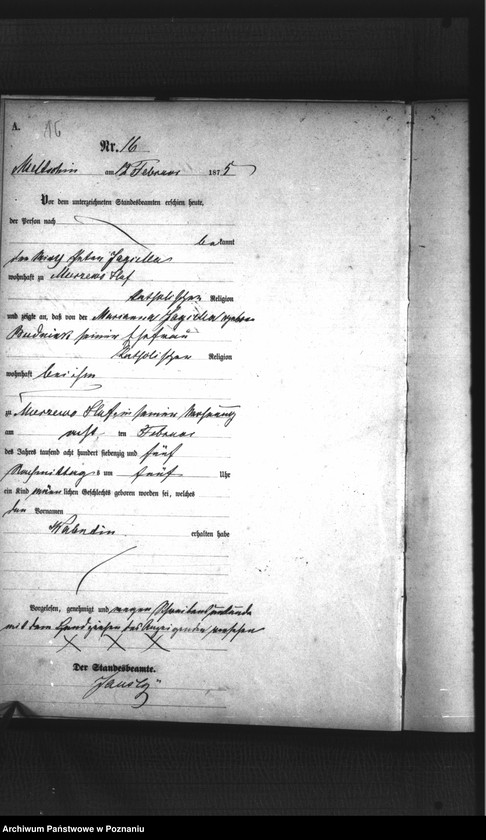 A. 16
Nr. 16
am 12 Februar 1875
Vor dem unterzeichneten Standesbeamten erschien heute,
der Person nach
bekannt
der Peter Jagiella
wohnhaft zu
katholischer Religion
und zeigte an, daß von der Marianna Jagiella geborne
seiner Ehefrau
katholischer Religion
wohnhaft bei ihm
zu in seiner Wohnung
am acht ten Februar
des Jahres tausend acht hundert siebenzig und fünf
Nachmittags um fünf Uhr
ein Kind männlichen Geschlechts geboren worden sei, welches
den Vornamen
erhalten habe
Vorgelesen, genehmigt und wegen Schreibensunkunde
mit dem Handzeichen des Anzeigenden versehen
X X X
Der Standesbeamte.
Archiwum Państwowe w Poznaniu